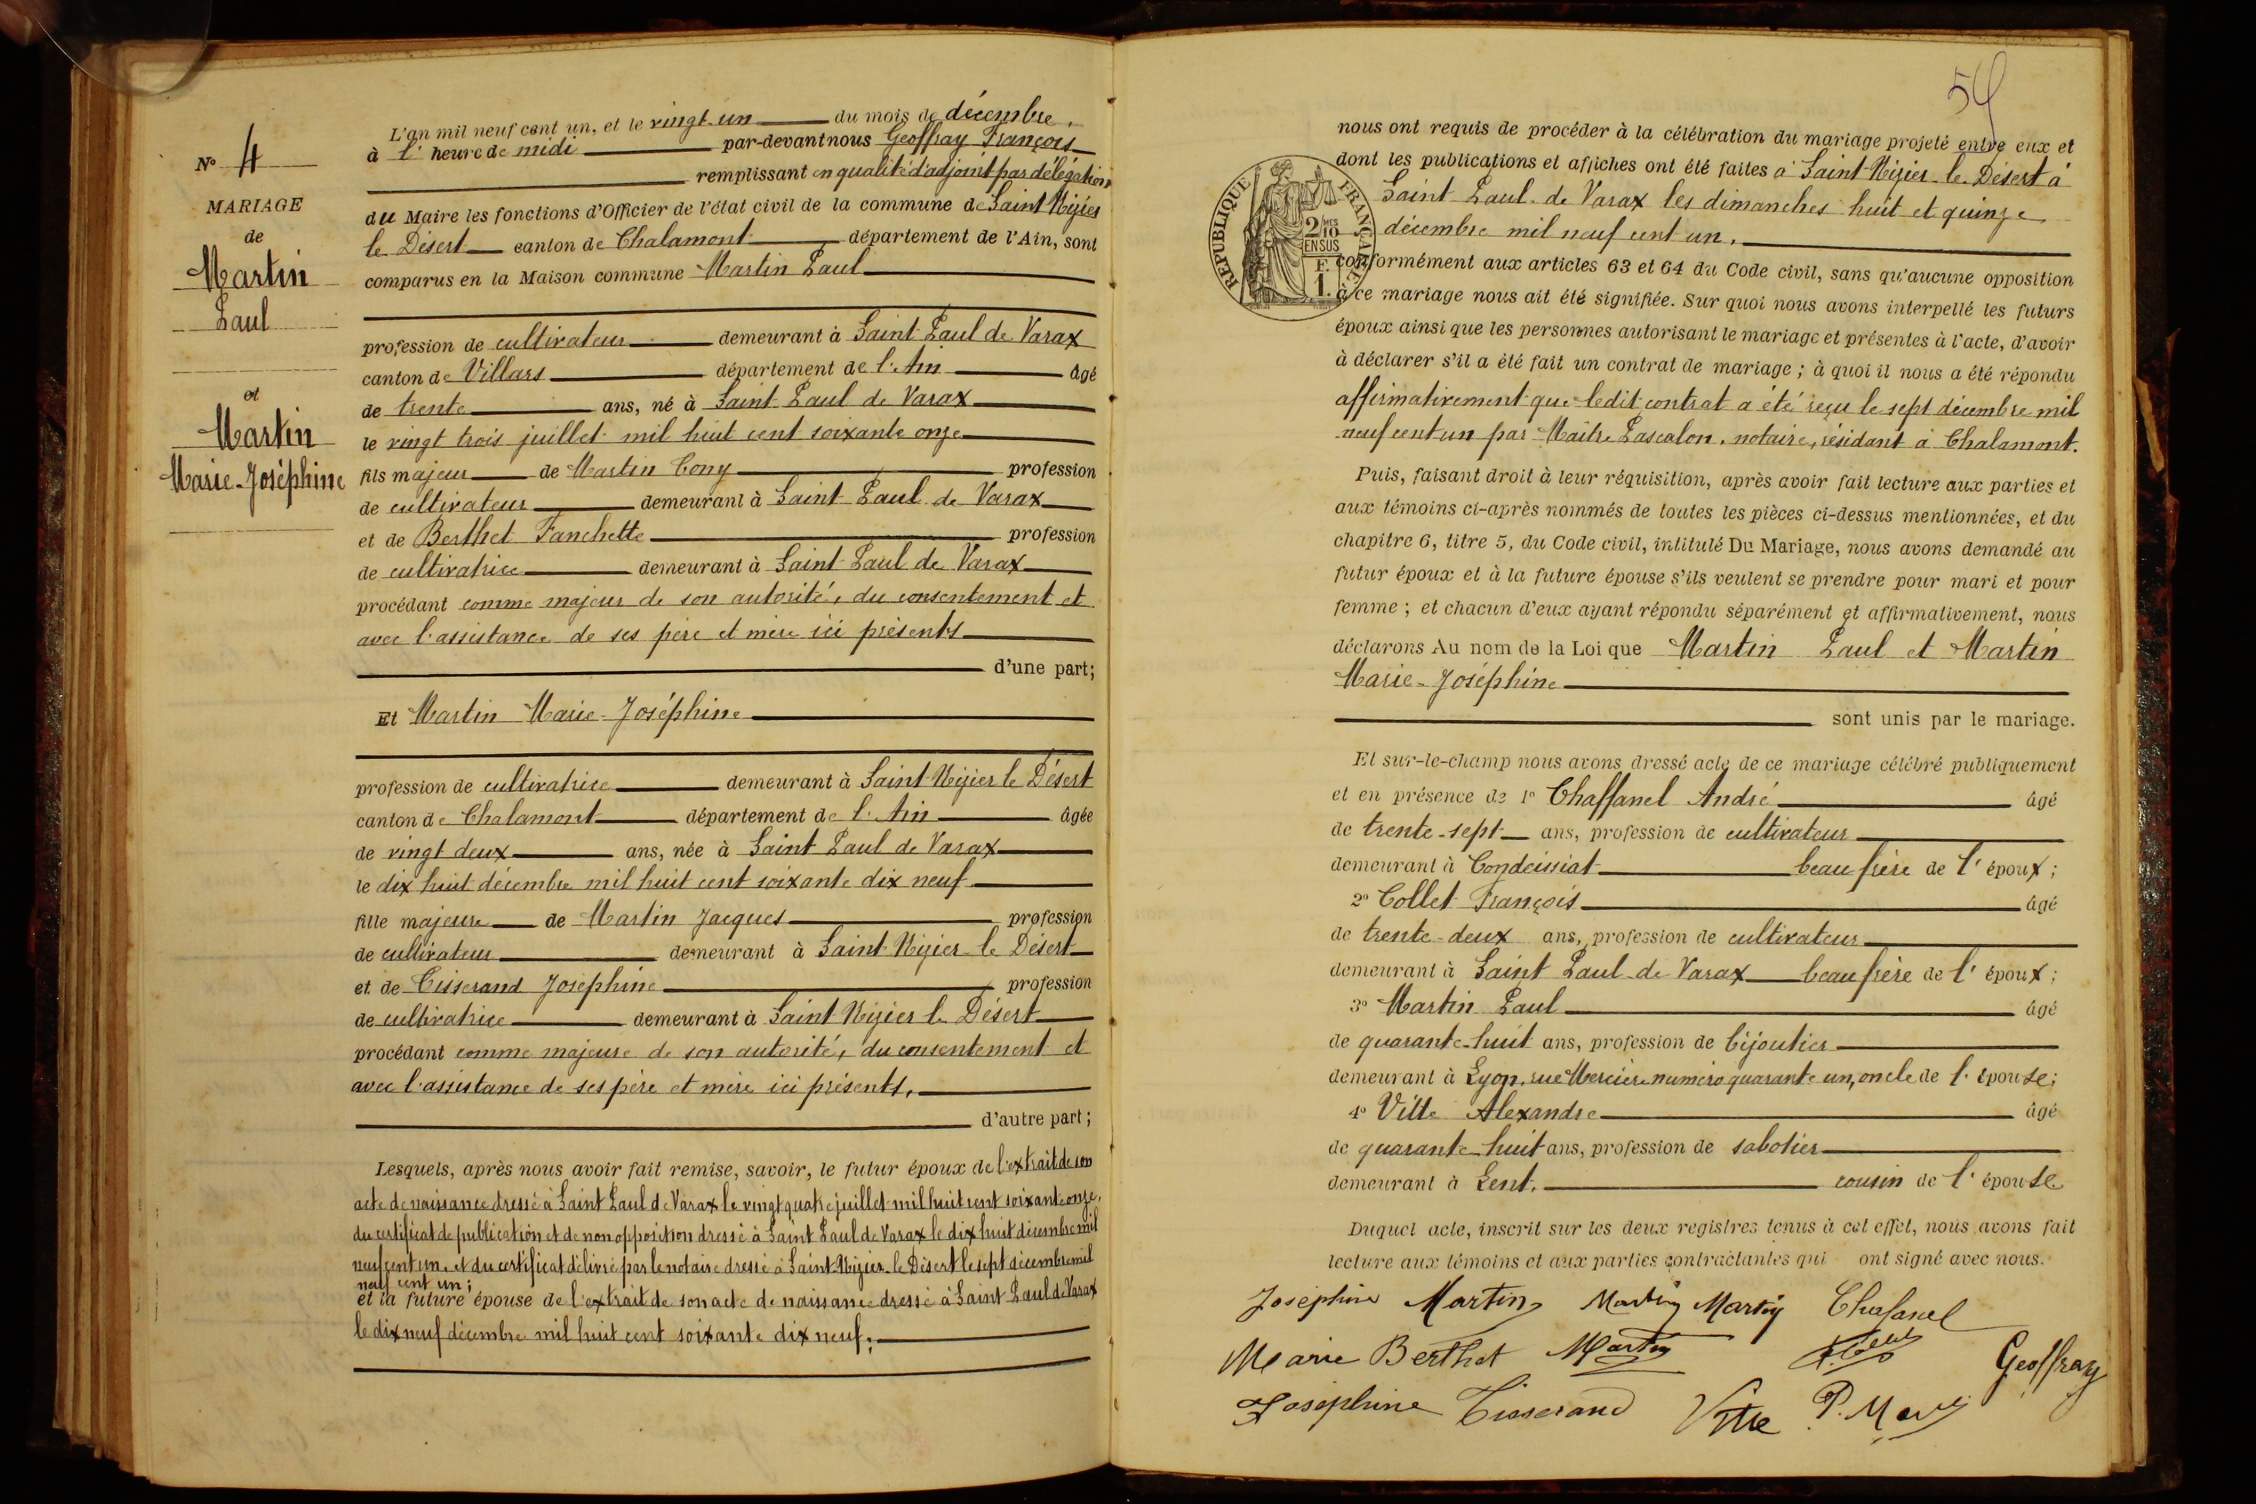 N° 4
MARIAGE
de
Martin
Paul
et
Martin
Marie-Joséphine
L'an mil neuf cent un, et le vingt-un du mois de décembre,
à l' heure de midi par-devant nous Geoffray François
remplissant en qualité d'adjoint par délégation
du Maire les fonctions d'Officier de l'état civil de la commune de Saint Nizier
le Désert canton de Chalamont département de l'Ain, sont
comparus en la Maison commune Martin Paul
profession de cultivateur demeurant à Saint-Paul de Varax
canton de Villars département de l'Ain âgé
de trente ans, né à Saint Paul de Varax
le vingt trois juillet mil huit cent soixante onze
fils majeur de Martin Tony profession
de cultivateur demeurant à Saint Paul de Varax
et de Berthet Fanchette profession
de cultivatrice demeurant à Saint-Paul de Varax
procédant comme majeur de son autorité, du consentement et
avec l'assistance de ses père et mère ici présents
d'une part;
Et Martin Marie-Joséphine
profession de cultivatrice demeurant à Saint-Nizier le Désert
canton de Chalamont département de l'Ain âgée
de vingt deux ans, née à Saint Paul de Varax
le dix huit décembre mil huit cent soixante dix neuf
fille majeure de Martin Jacques profession
de cultivateur demeurant à Saint-Nizier le Désert
et de Tisserand Joséphine profession
de cultivatrice demeurant à Saint Nizier le Désert
procédant comme majeure de son autorité, du consentement et
avec l'assistance de ses père et mère ici présents,
d'autre part;
Lesquels, après nous avoir fait remise, savoir, le futur époux de l'extrait de son
acte de naissance dressé à Saint Paul de Varax le vingt quatre juillet mil huit cent soixante onze,
du certificat de publication et de non opposition dressé à Saint Paul de Varax le dix huit décembre mil
neuf cent un, et du certificat délivré par le notaire dressé à Saint-Nizier-le Désert le sept décembre mil
neuf cent un;
et la future épouse de l'extrait de son acte de naissance dressé à Saint Paul de Varax
le dix neuf décembre mil huit cent soixante dix neuf;
54
RÉPUBLIQUE FRANÇAISE
2/10 MES
EN SUS
F.
1.
nous ont requis de procéder à la célébration du mariage projeté entre eux et
dont les publications et affiches ont été faites à Saint-Nizier-le-Désert à
Saint Paul de Varax les dimanches huit et quinze
décembre mil neuf cent un,
conformément aux articles 63 et 64 du Code civil, sans qu'aucune opposition
à ce mariage nous ait été signifiée. Sur quoi nous avons interpellé les futurs
époux ainsi que les personnes autorisant le mariage et présentes à l'acte, d'avoir
à déclarer s'il a été fait un contrat de mariage; à quoi il nous a été répondu
affirmativement que ledit contrat a été reçu le sept décembre mil
neuf cent un par Maître Pascalon, notaire, résidant à Chalamont.
Puis, faisant droit à leur réquisition, après avoir fait lecture aux parties et
aux témoins ci-après nommés de toutes les pièces ci-dessus mentionnées, et du
chapitre 6, titre 5, du Code civil, intitulé Du Mariage, nous avons demandé au
futur époux et à la future épouse s'ils veulent se prendre pour mari et pour
femme; et chacun d'eux ayant répondu séparément et affirmativement, nous
déclarons Au nom de la Loi que Martin Paul et Martin
Marie-Joséphine
sont unis par le mariage.
Et sur-le-champ nous avons dressé acte de ce mariage célébré publiquement
et en présence de 1° Chaffanel André âgé
de trente-sept ans, profession de cultivateur
demeurant à Condeissiat beau frère de l' époux;
2° Collet François âgé
de trente-deux ans, profession de cultivateur
demeurant à Saint Paul de Varax beau frère de l' époux;
3° Martin Paul âgé
de quarante-huit ans, profession de bijoutier
demeurant à Lyon, rue Mercière numéro quarante un, oncle de l' épouse;
4° Vitte Alexandre âgé
de quarante-huit ans, profession de sabotier
demeurant à Lent, cousin de l' épouse
Duquel acte, inscrit sur les deux registres tenus à cet effet, nous avons fait
lecture aux témoins et aux parties contractantes qui ont signé avec nous.
Joséphine Martin Martin Martin Chafanel
Marie Berthet Martin Geoffray
Joséphine Tisserand Vitte